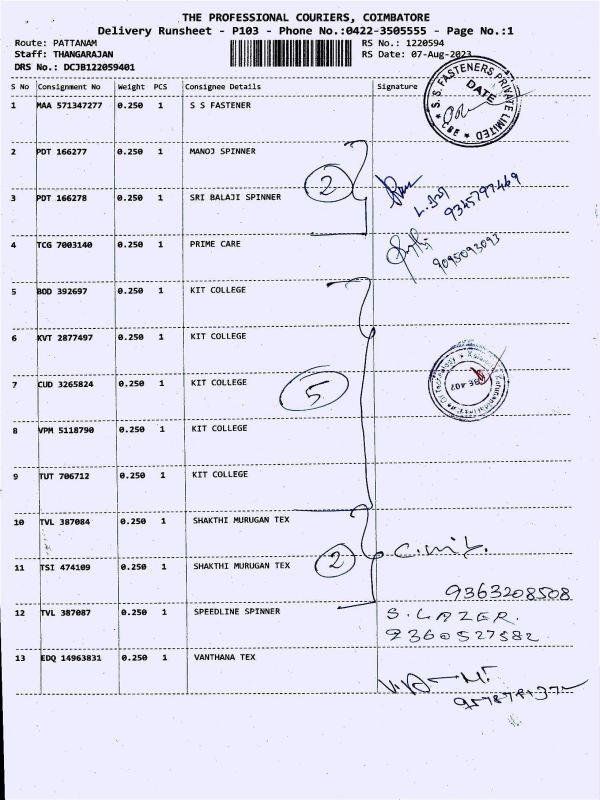 THE PROFESSIONAL COURIERS, COIMBATORE
Delivery Runsheet - P103 - Phone No.:0422-3505555 - Page No.:1
Route: PATTANAM RS No.: 1220594
Staff: THANGARAJAN RS Date: 07-Aug-2023
DRS No.: DCJB122059401
S No Consignment No Weight PCS Consignee Details Signature
S. S. FASTENERS PRIVATE LIMITED
DATE
1 MAA 571347277 0.250 1 S S FASTENER
2 PDT 166277 0.250 1 MANOJ SPINNER
2
3 PDT 166278 0.250 1 SRI BALAJI SPINNER
9345797469
4 TCG 7003140 0.250 1 PRIME CARE
9095093093
5 BOD 392697 0.250 1 KIT COLLEGE
6 KVT 2877497 0.250 1 KIT COLLEGE
7 CUD 3265824 0.250 1 KIT COLLEGE
5
8 VPM 5118790 0.250 1 KIT COLLEGE
9 TUT 706712 0.250 1 KIT COLLEGE
10 TVL 387084 0.250 1 SHAKTHI MURUGAN TEX
11 TSI 474109 0.250 1 SHAKTHI MURUGAN TEX
2
9363208508
12 TVL 387087 0.250 1 SPEEDLINE SPINNER
S. LAZER.
9360527582
13 EDQ 14963831 0.250 1 VANTHANA TEX